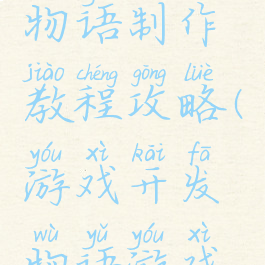 物语制作
jiào chéng gōng lüè
教程攻略(
yóu xì kāi fā
游戏开发
wù yǔ yóu xì
物语游戏